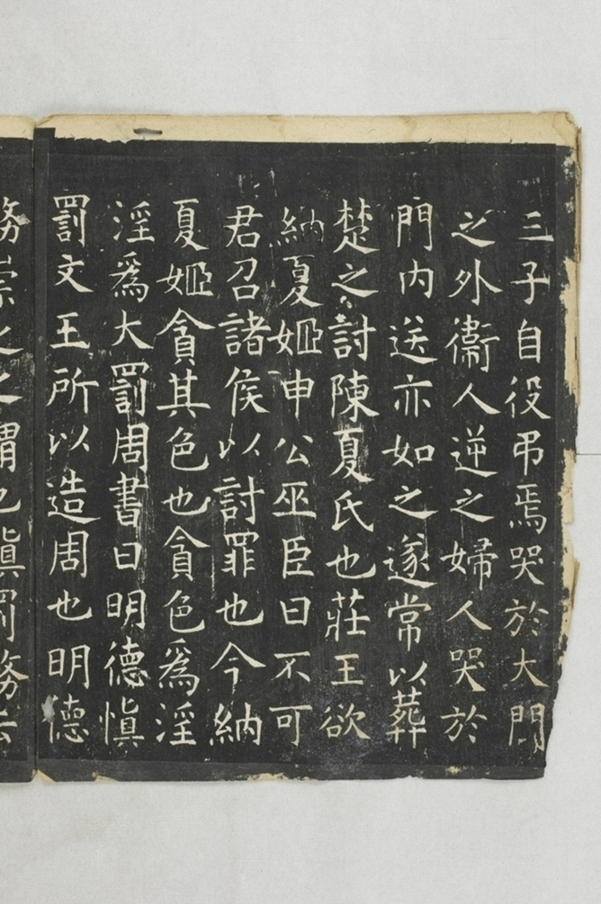 三子自役弔焉哭於大門
之外衞人逆之婦人哭於
門内送亦如之遂常以葬
楚之討陳夏氏也莊王欲
納夏姬申公巫臣曰不可
君召諸侯以討罪也今納
夏姬貪其色也貪色爲淫
淫爲大罰周書曰明德慎
罰文王所以造周也明德
務崇之之謂也慎罰務去